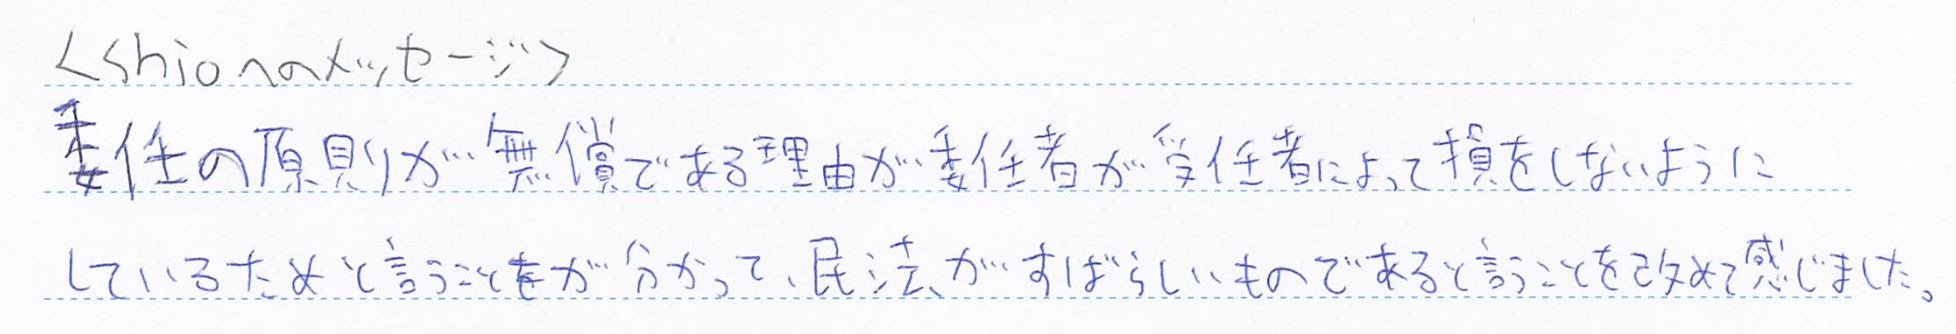 <shioへのメッセージ>
委任の原則が無償である理由が委任者が受任者によって損をしないように
しているためと言うことをが分かって、民法がすばらしいものであると言うことを改めて感じました。